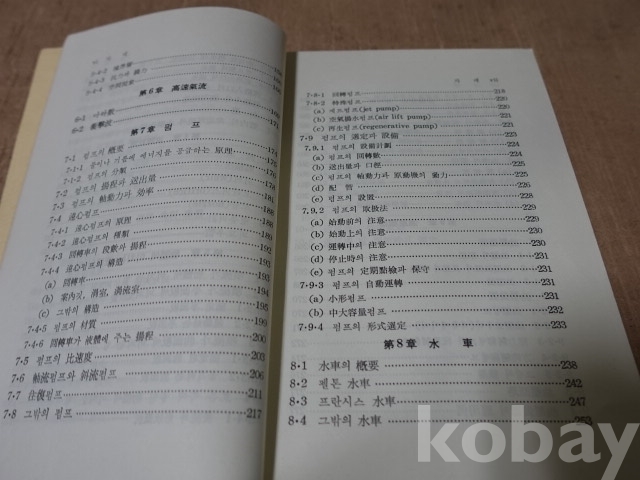 第6章 高速氣流
6·1 마하數
6·2 衝擊波
第7章 펌프
7·1 펌프의 概要 174
7·1·1 물이나 기름에 에너지를 공급하는 原理
7·1·1 펌프의 分類
7·2 펌프의 揚程과 送出量
7·3 펌프의 軸動力과 効率
7·4 遠心펌프
7·4·1 遠心펌프의 原理
7·4·2 遠心펌프의 種類
7·4·3 回轉車의 段數과 揚程 190
7·4·4 遠心펌프의 構造 192
(a) 回轉車 192
(b) 案內깃, 渦室, 渦流室 193
(c) 그밖의 構造 195
7·4·5 펌프의 材質 199
7·4·6 回轉車가 液體에 주는 揚程 200
7·5 펌프의 比速度 203
7·6 軸流펌프와 斜流펌프 206
7·7 往復펌프 211
7·8 그밖의 펌프 217
7·8·1 回轉펌프 218
7·8·2 特殊펌프 220
(a) 제트펌프(jet pump) 220
(b) 空氣揚水펌프(air lift pump) 220
(c) 再生펌프(regenerative pump) 221
7·9 펌프의 選定과 設備 223
7.9.1 펌프의 設備計劃 224
(a) 펌프의 回轉數 224
(b) 送出量과 口徑 225
(c) 펌프의 軸動力과 原動機의 動力 225
(d) 配管 226
(e) 펌프의 設置 228
7.9.2 펌프의 取扱法 229
(a) 始動前의 注意 229
(b) 始動上의 注意 229
(c) 運轉中의 注意 230
(d) 停止時의 注意 230
(e) 펌프의 定期點檢과 保守 231
7·9·3 펌프의 自動運轉 231
(a) 小形펌프 231
(b) 中大容量펌프 231
7·9·4 펌프의 形式選定 233
第8章 水車
8·1 水車의 概要 238
8·2 펠톤 水車 242
8·3 프란시스 水車 247
8·4 그밖의 水車 253
kobay